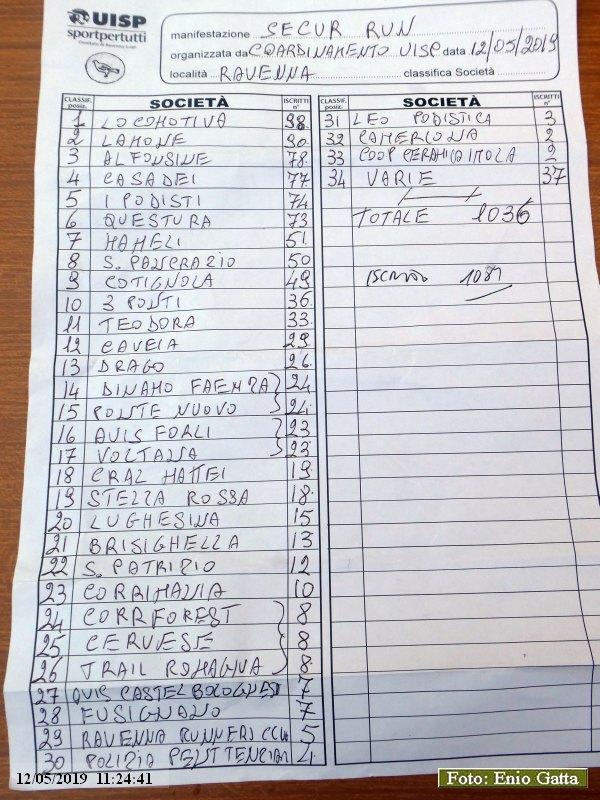 UISP
sportpertutti
Comitato di Ravenna-Lugo
manifestazione SECUR RUN
organizzata da COORDINAMENTO UISP data 12/05/2019
località RAVENNA classifica Società
CLASSIF. posiz. SOCIETÀ ISCRITTI n°
1 LOCOMOTIVA 98
2 LAMONE 90
3 ALFONSINE 78
4 CASADEI 77
5 I PODISTI 74
6 QUESTURA 73
7 MAMELI 51
8 S. PANCRAZIO 50
9 COTIGNOLA 49
10 3 PONTI 36
11 TEODORA 33
12 CAVEJA 29
13 DRAGO 26
14 DINAMO FAENZA 24
15 PONTE NUOVO 24
16 AVIS FORLI 23
17 VOLTANA 23
18 CRAL MATTEI 19
19 STELLA ROSSA 18
20 LUGHESINA 15
21 BRISIGHELLA 13
22 S. PATRIZIO 12
23 CORRIMANIA 10
24 CORRFOREST 8
25 CERVESE 8
26 TRAIL ROMAGNA 8
27 AVIS CASTEL BOLOGNESE 7
28 FUSIGNANO 7
29 RAVENNA RUNNERS CLUB 5
30 POLIZIA PENITENZIAR 4
CLASSIF. posiz. SOCIETÀ ISCRITTI n°
31 LEO PODISTICA 3
32 CAMERLONA 2
33 COOP CERAMICA IMOLA 2
34 VARIE 37
TOTALE 1036
12/05/2019 11:24:41
Foto: Enio Gatta